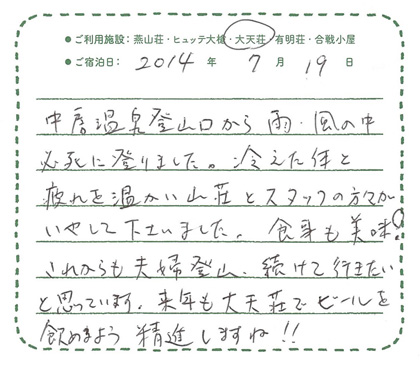 ●ご利用施設：燕山荘・ヒュッテ大槍・大天荘・有明荘・合戦小屋
●ご宿泊日： 2014 年 7 月 19 日
中房温泉登山口から 雨・風の中
必死に登りました。冷えた体と
疲れを温かい山荘とスタッフの方々が
いやして下さいました。 食事も美味！
これからも夫婦登山、続けて行きたい
と思っています。来年も大天荘でビールを
飲めるよう 精進しますね!!